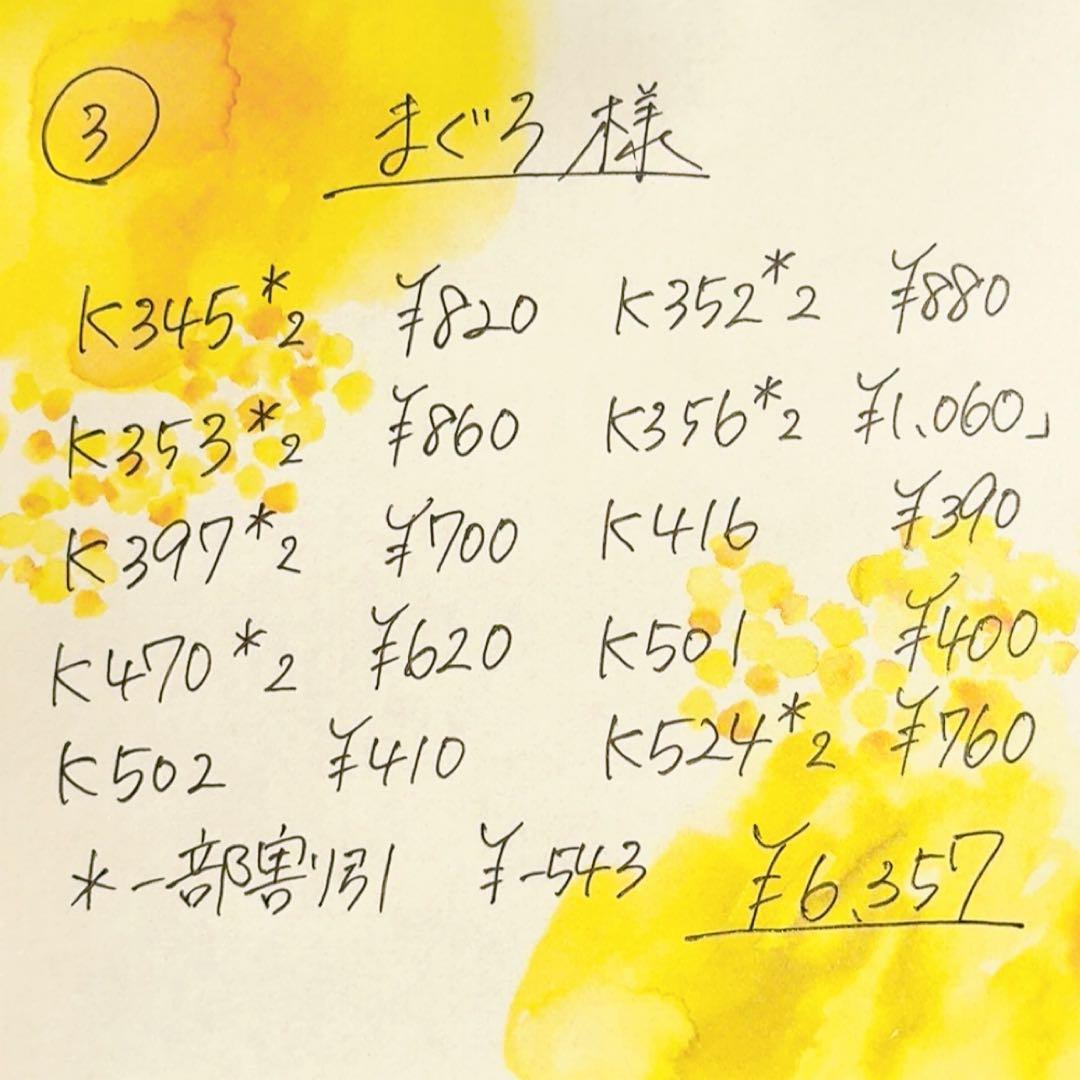 ③ まぐろ様
K345*2 ¥820 K352*2 ¥880
K353*2 ¥860 K356*2 ¥1,060」
K397*2 ¥700 K416 ¥390
K470*2 ¥620 K501 ¥400
K502 ¥410 K524*2 ¥760
*一部割引 ¥-543 ¥6,357